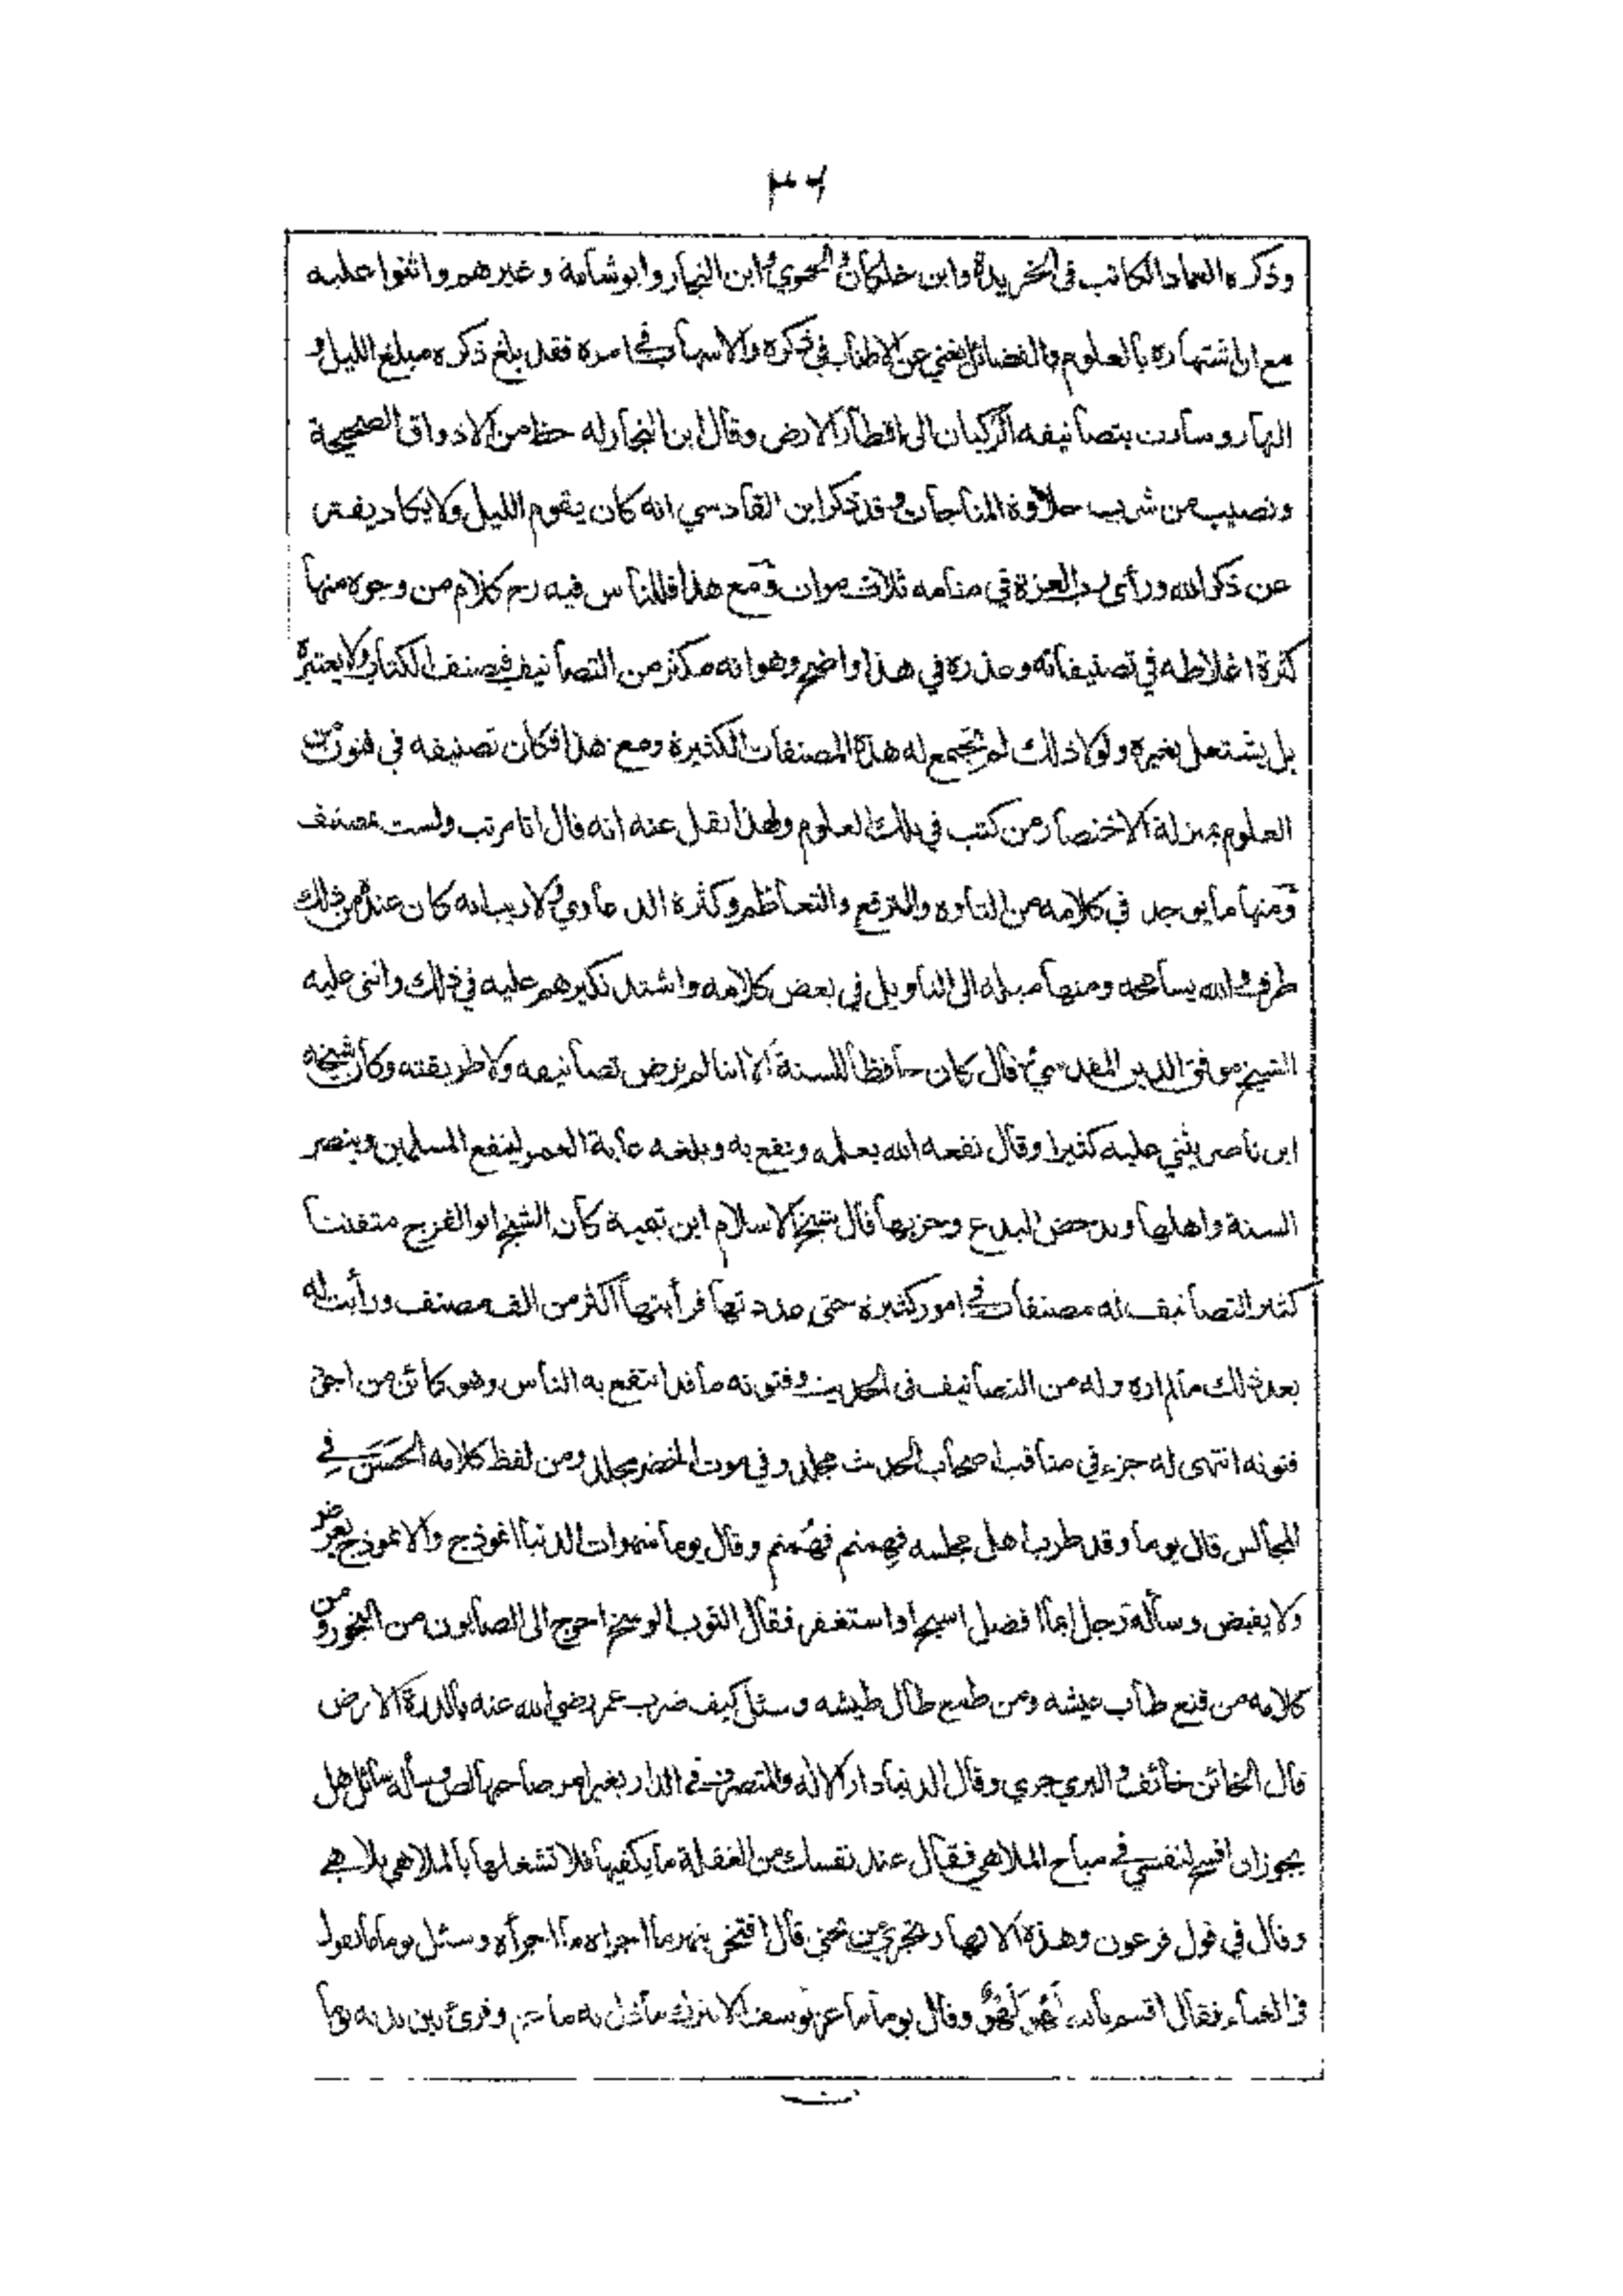 ٣٦
وذكره العماد الكاتب في الخريدة وابن خلكان والحموي وابن النجار وابو شامة وغيرهم واثنوا عليه
مع ان اشتهاره بالعلوم والفضائل يغني عن الاطناب في ذكره والاسهاب في امره فقد بلغ ذكره مبلغ الليل و
النهار وسارت بتصانيفه الركبان الى اقطار الارض وقال ابن النجار له حظ من الاذواق الصحيحة
ونصيب من شرب حلاوة المناجات وقد ذكر ابن القادسي انه كان يقوم الليل ولا يكاد يفتر
عن ذكر الله ورأى رب العزة في منامه ثلاث مرات ومع هذا فللناس فيه رح كلام من وجوه منها
كثرة اغلاطه في تصنيفاته وعذره في هذا واضح وهو انه مكثر من التصانيف فيصنف الكتاب ولا يعتبره
بل يشتغل بغيره ولولا ذلك لم تجتمع له هذه المصنفات الكثيرة ومع هذا فكان تصنيفه في فنون من
العلوم بمنزلة الاختصار من كتب في تلك العلوم ولهذا نقل عنه انه قال انا مرتب ولست مصنف
ومنها ما يوجد في كلامه من التاوه والترفع والتعاظم وكثرة الدعاوي ولا ريب انه كان عنده من ذلك
طرف والله يسامحه ومنها ميله الى التأويل في بعض كلامه واشتد نكيرهم عليه في ذلك واثنى عليه
الشيخ موفق الدين المقدسي فقال كان حافظا للسنة الا اننا لم نرض تصانيفه ولا طريقته وكان شيخه
ابن ناصر يثني عليه كثيرا وقال نفعه الله بعلمه ونفع به وبلغه غاية العمر لينفع المسلمين وينصر
السنة واهلها ويدحض البدع وحزبها قال شيخ الاسلام ابن تيمية كان الشيخ ابو الفرج متفننا
كثير التصانيف له مصنفات في امور كثيرة حتى عددتها فرأيتها اكثر من الف مصنف ورأيت له
بعد ذلك ما لم اره وله من التصانيف في الحديث وفنونه ما قد انتفع به الناس وهو كائن من اجود
فنونه انتهى له جزء في مناقب اصحاب الحديث مجلد وفي موت الخضر مجلد ومن لفظ كلامه الحسن في
المجالس قال يوما وقد طرب اهل مجلسه فهمتم فهمتم وقال يوما شهوات الدنيا انموذج والانموذج يعرض
ولا يقبض وسأله رجل ايما افضل اسبح او استغفر فقال الثوب الوسخ احوج الى الصابون من البخور ومن
كلامه من قنع طاب عيشه ومن طمع طال طيشه وسئل كيف ضرب عمر رضي الله عنه بالدرة الارض
قال الخائن خائف والبري جري وقال الدنيا دار الاله والمتصرف في الدار بغير امر صاحبها لص وسأله سائل هل
يجوز ان افسح لنفسي في مباح الملاهي فقال عند نفسك من الغفلة ما يكفيها فلا تشغلها بالملاهي ملاهي
وقال في قول فرعون وهذه الانهار تجري من تحتي قال افتخر بنهر ما اجراه ما اجرأه وسئل يوما ما تقول
في الغناء فقال اقسم بالله لهو لهو وقال يوما عن يوسف وقرئ بين يديه يوما